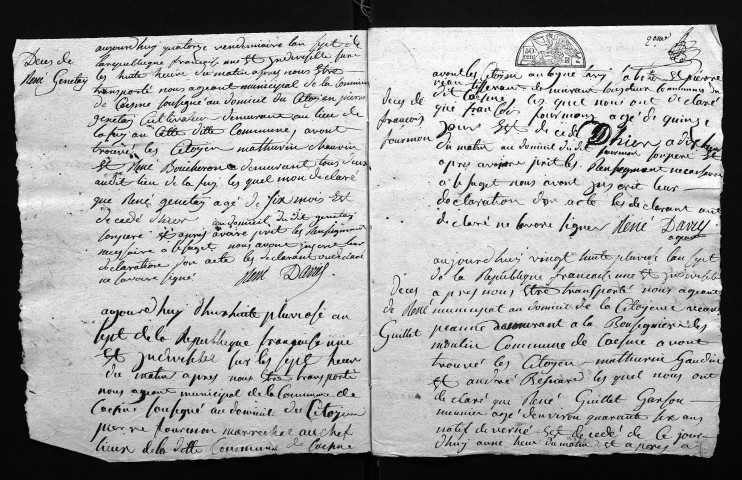 Deces de
René Genetay
aujourdhuy quatorze vendemiaire lan sept de
la republique francoise une et indivisible sur
les huite heure du matin apres nous être
transporté nous agent municipal de la commune
de Caesne soussigné au domicil du Citoyen pierre
genetay cultivateur demeurant au lieu de
la fuy au cette ditte Commune, avont
trouvée les Citoyen mathurin chauvin
et René Boucheron demeurant tous deux
audit lieu de la fuy les quel mon declaré
que René genetay agé de six mois est
decedé hier au domicil du dit genetay
son pere et apres avoire prit les Renseignement
necessaire à le sujet nous avont inscrit leur
declaration don acte les declarant ont declaré
ne savoire signé René Davis
aujourdhuy dhuitte pluviose an
sept de la Republique françoise une
et indivisible sur les sept heure
du matin apres nous être transporté
nous agent municipal de la Commune de
Caesne soussigné au domicil du Citoyen
pierre fourmon marrechal au chef
lieux de la ditte Commune de Caesne
2eme
avont les Citoyen
pierre
demeurant tous deux Commune du
dit Caesne les quel nous ont declaré
deces de
françois
fourmon
que françois fourmon agé de quinse
jours est decedé Dhier a dix heure
du matin au domicil du dit fourmon son pere et
apres avoire prit les Renseignement necessaire
a le sujet nous avont inscrit leur
declaration don acte les declarant ont
declaré ne savoire signer René Davis
agent
aujourdhuy vingt huite pluviose lan sept
de la Republique francoise une et indivisible
deces
de René
Guillet
apres nous être transporté nous agent
municipal au domicil de la Citoyene
demeurant a la Bousigniere des
moulin Commune de Caesne avont
trouvé les Citoyen mathurin Gaudin
et andré les quel nous ont
declaré que René Guillet Garson
munier agé denviron quarante six ans
natif de verné est decedé de ce jour
dhuy a une heure du matin et apres a